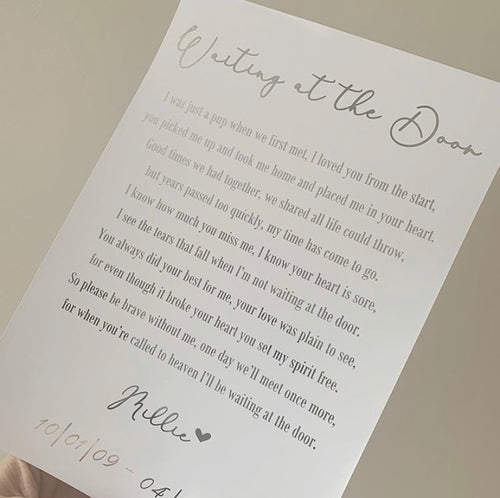 Waiting at the Door
I was just a pup when we first met, I loved you from the start,
you picked me up and took me home and placed me in your heart.
Good times we had together, we shared all life could throw,
but years passed too quickly, my time has come to go.
I know how much you miss me, I know your heart is sore,
I see the tears that fall when I'm not waiting at the door.
You always did your best for me, your love was plain to see,
for even though it broke your heart you set my spirit free.
So please be brave without me, one day we'll meet once more,
for when you're called to heaven I'll be waiting at the door.
Millie♥
10/01/09 - 04/